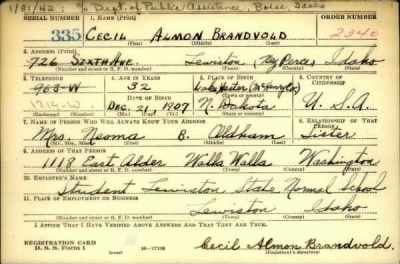 1/31/42: c/o Dept. of Public Assistance, Boise, Idaho
SERIAL NUMBER 1. NAME (Print) ORDER NUMBER
335 CECIL ALMON BRANDVOLD 2340
(First) (Middle) (Last)
2. ADDRESS (Print)
726 SIXTH AVE. Lewiston (Nez Perce) Idaho
(Number and street or R. F. D. number) (Town) (County) (State)
3. TELEPHONE 4. AGE IN YEARS 5. PLACE OF BIRTH 6. COUNTRY OF CITIZENSHIP
963-W 32 (McHenry Co.)
1319-W DATE OF BIRTH
Dec. 21, 1907 N. Dakota U. S. A.
(Exchange) (Number) (Mo.) (Day) (Yr.) (State or country)
7. NAME OF PERSON WHO WILL ALWAYS KNOW YOUR ADDRESS 8. RELATIONSHIP OF THAT PERSON
Mrs. Neoma B. Oldham Sister
(Mr., Mrs., Miss) (First) (Middle) (Last)
9. ADDRESS OF THAT PERSON
1118 East Alder Walla Walla Washington
(Number and street or R. F. D. number) (Town) (County) (State)
10. EMPLOYER'S NAME
Student Lewiston State Normal School
11. PLACE OF EMPLOYMENT OR BUSINESS
Lewiston Idaho
(Number and street or R. F. D. number) (Town) (County) (State)
I AFFIRM THAT I HAVE VERIFIED ABOVE ANSWERS AND THAT THEY ARE TRUE.
REGISTRATION CARD
D. S. S. Form 1 16—17105 Cecil Almon Brandvold.
(Registrant's signature)